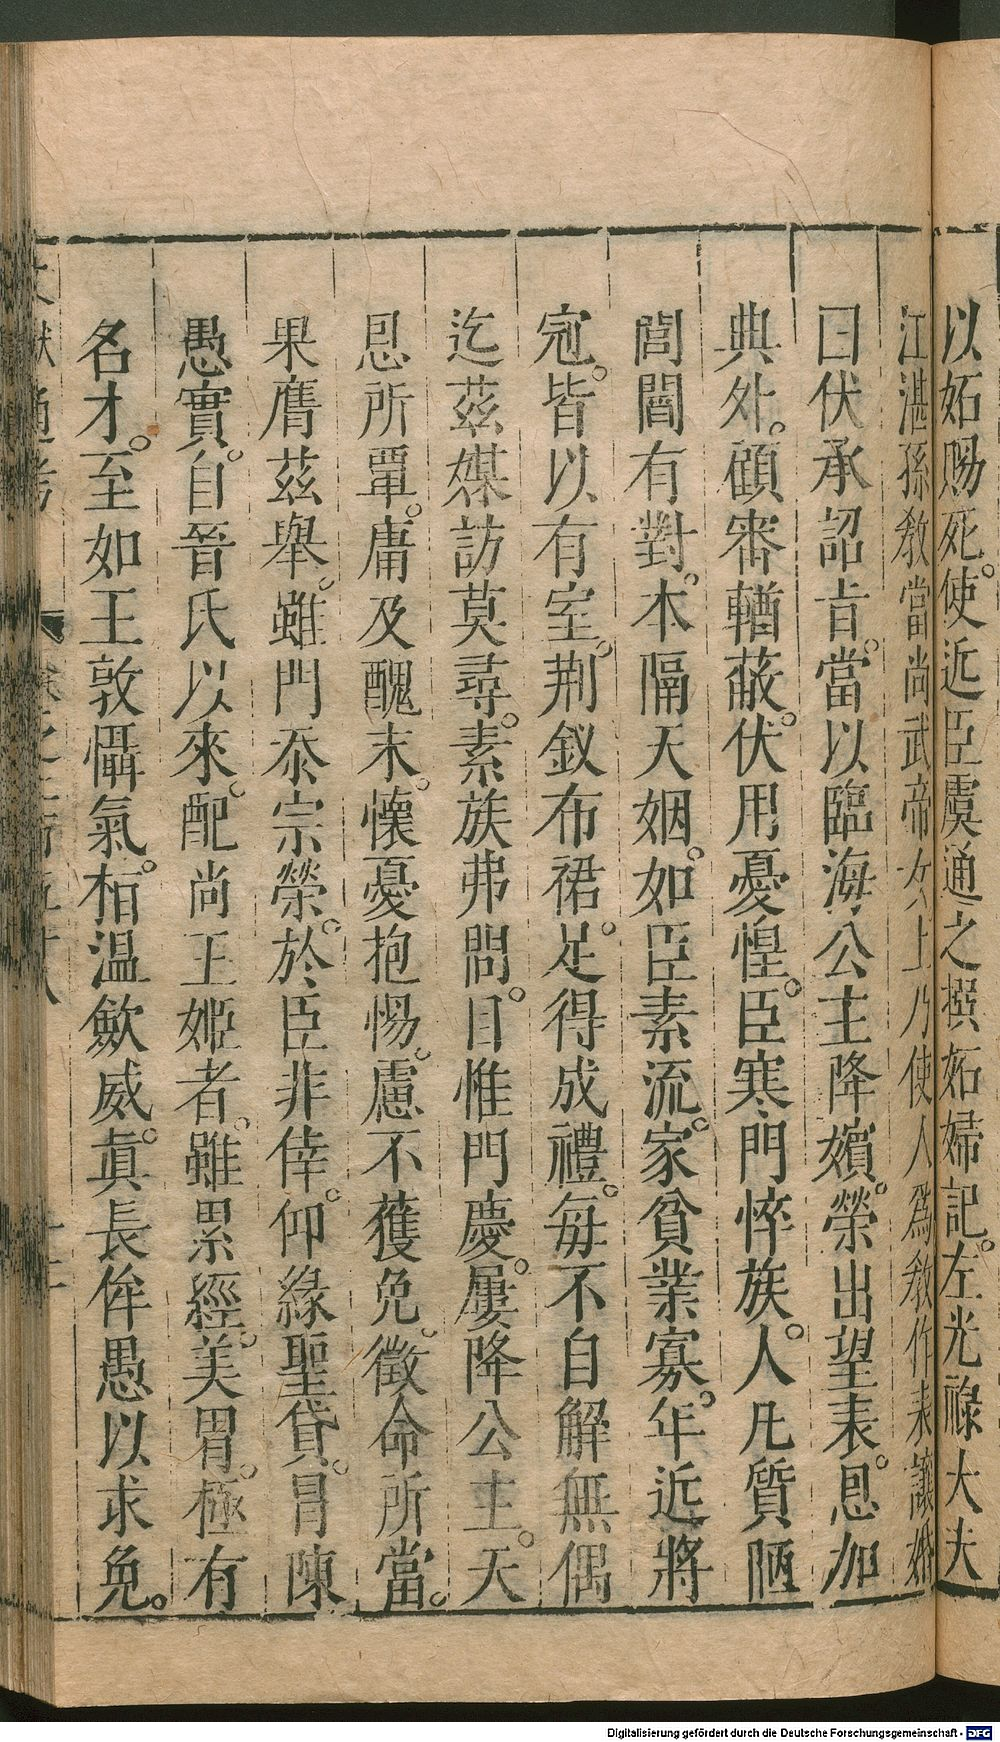 以妬賜死。使近臣虞通之撰妬婦記。左光祿大夫
江湛孫敎當尚武帝女上乃使人爲敎作表讓婚
曰伏承詔㫖。當以臨海公主降嬪。榮出望表。恩加
典外。顧審輶蔽。伏用憂惶。臣寒門悴族。人凡質陋
閭閻有對。本隔天姻。如臣素流。家貧業寡。年近將
冠。皆以有室。荆釵布裙。足得成禮。每不自解無偶
迄茲媒訪莫尋。素族弗問。目惟門慶。屢降公主。天
恩所覃。庸及醜末。懷憂抱惕。慮不獲免。徵命所當。
果膺茲舉。雖門泰宗榮。於臣非倖。仰緣聖貸。冐陳
愚實。自晉氏以來。配尚王姬者。雖累經美胃。極有
名才。至如王敦懾氣。桓温歛威。眞長佯愚以求免。
文獻通考
Digitalisierung gefördert durch die Deutsche Forschungsgemeinschaft - DFG